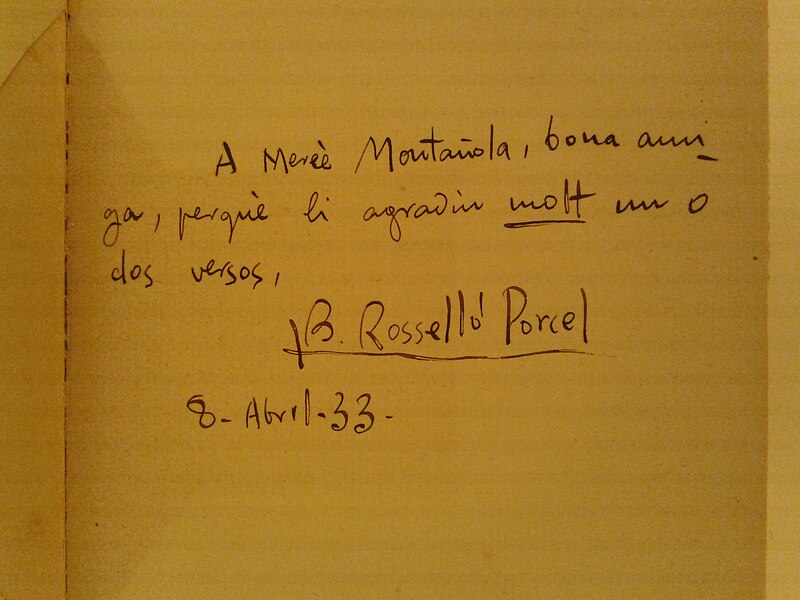 A Mercè Montañola, bona ami-
ga, perquè li agradin molt un o
dos versos,
B. Rosselló Pòrcel
8-Abril-33-